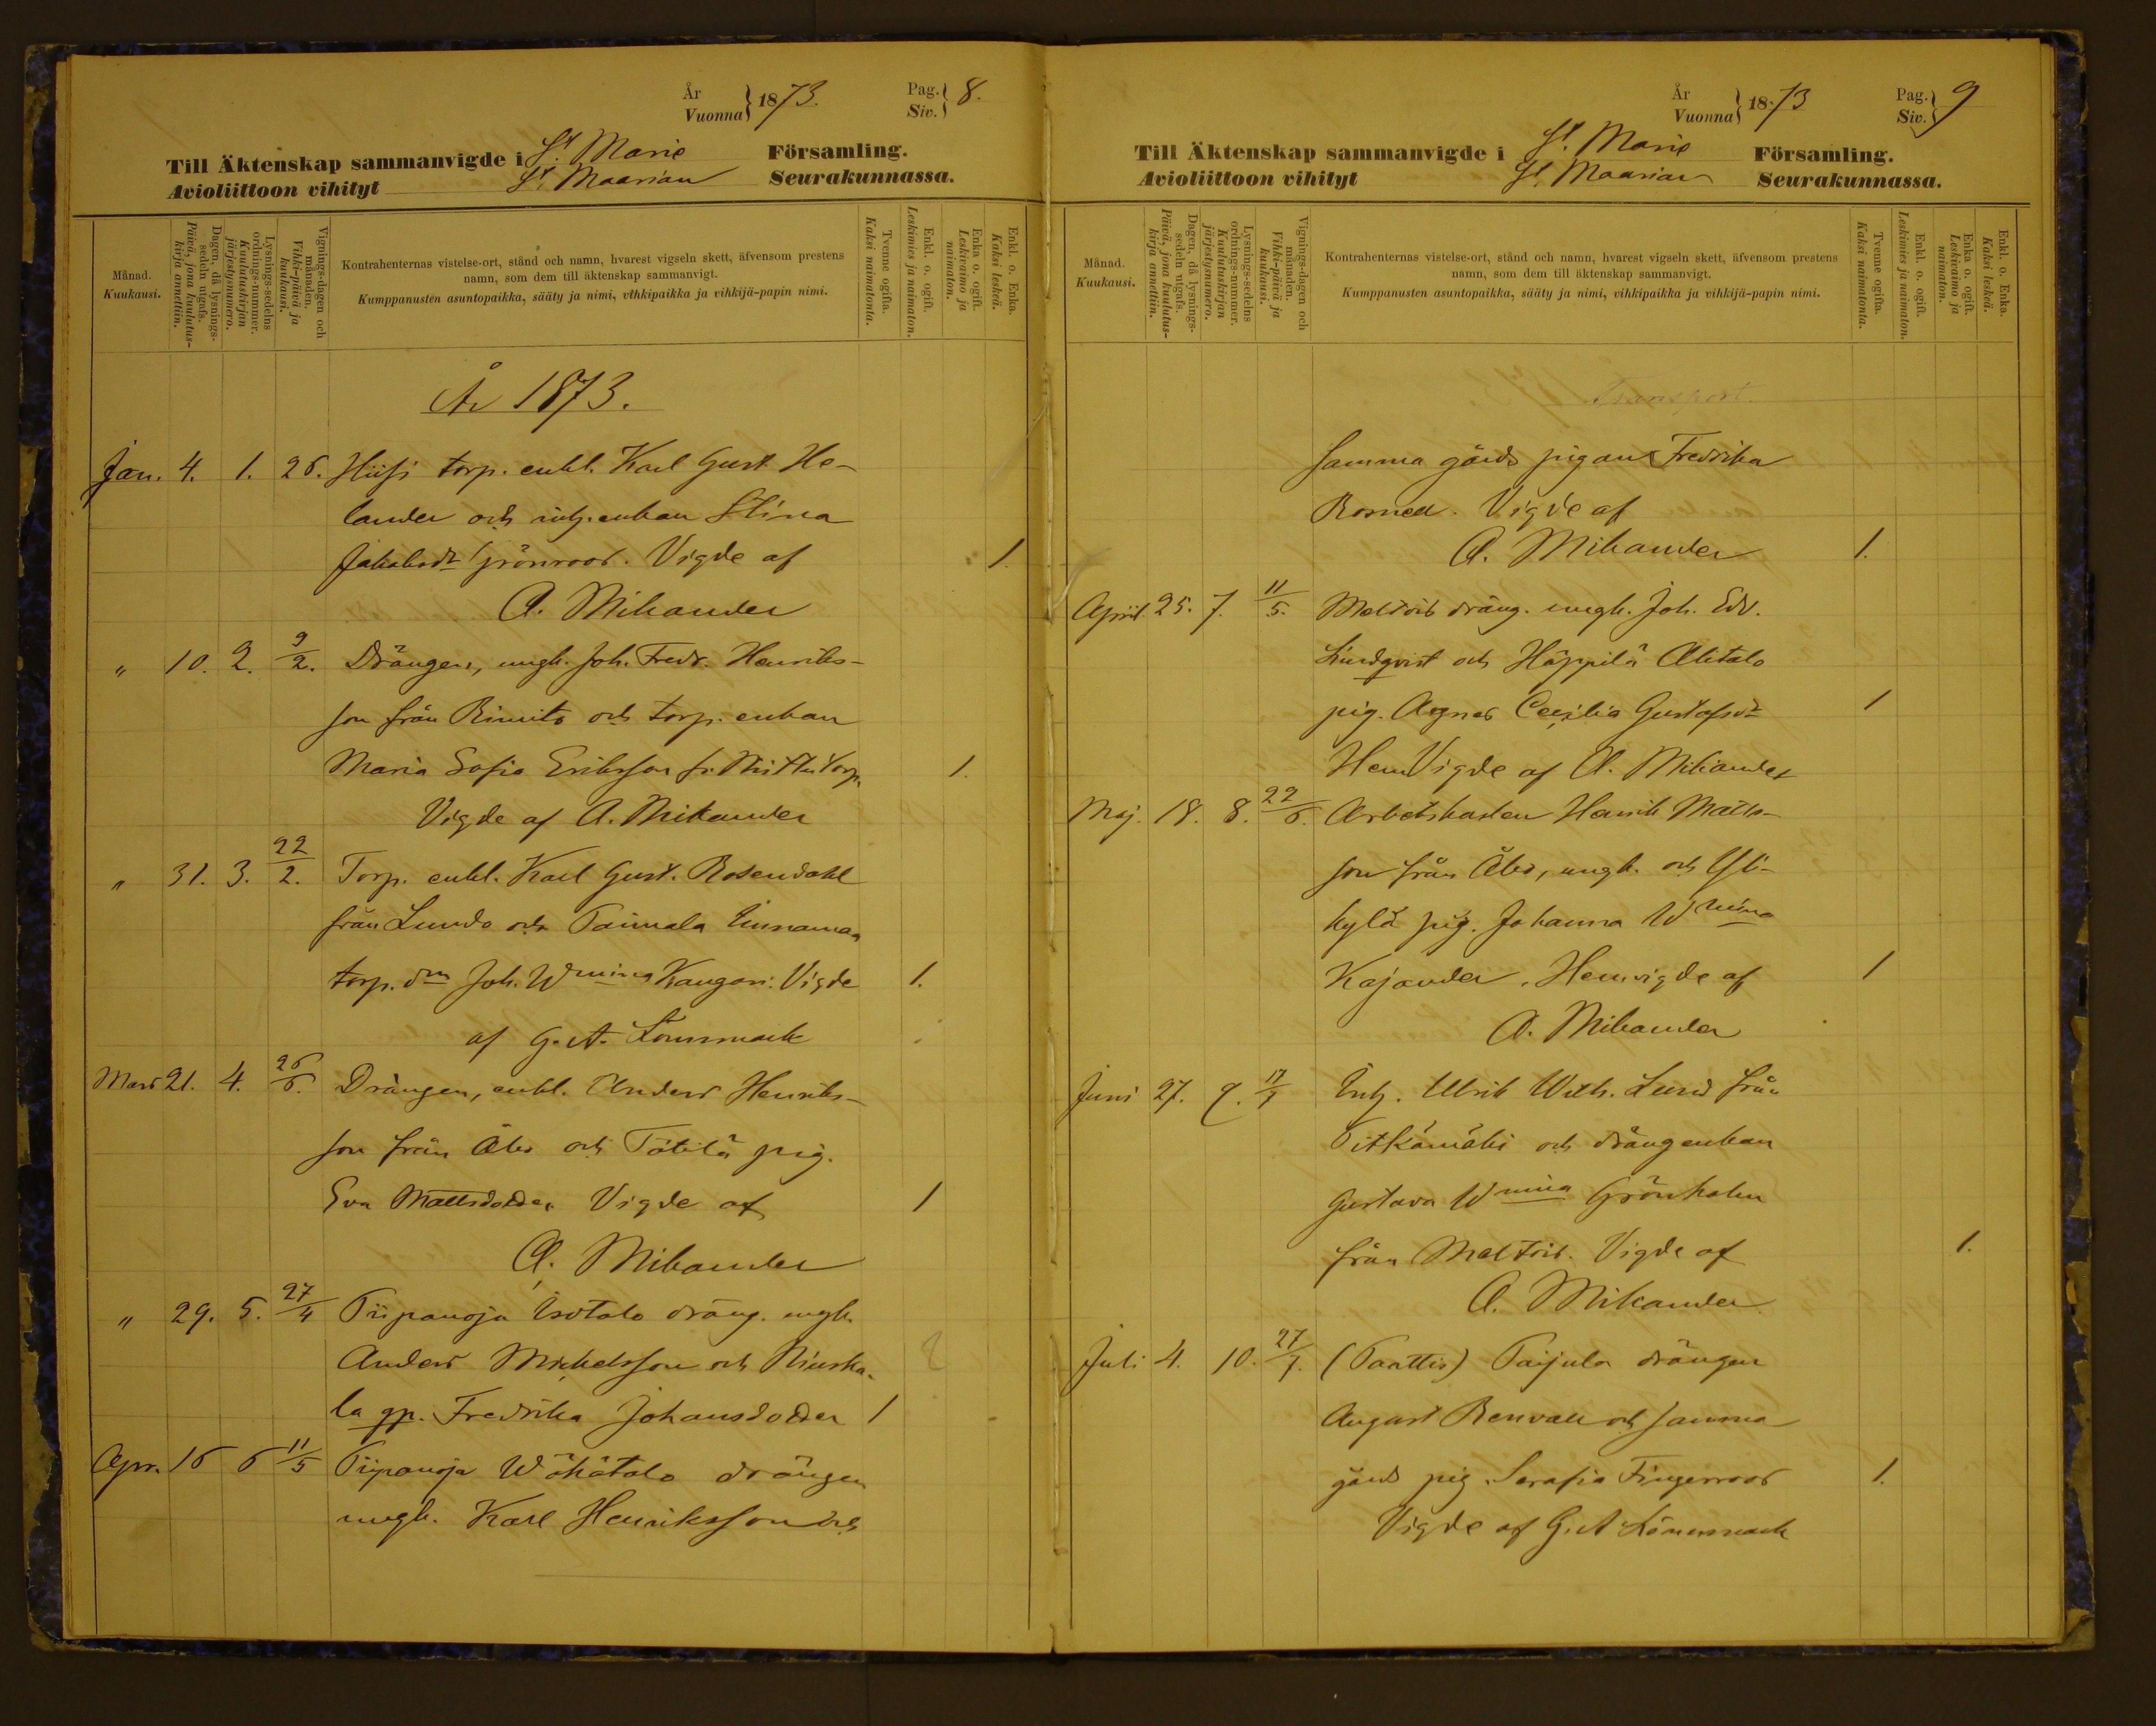 År
Vuonna } 1873.
Pag.
Siv. } 8.
Till Äktenskap sammanvigde i St. Marie Församling.
Avioliittoon vihityt St. Maarian Seurakunnassa.
Månad.
Kuukausi.
Dagen, då lysnings-
sedeln utgafs.
Päivä, jona kuulutus-
kirja annettiin.
Lysnings-sedelns
ordnings-nummer.
Kuulutuskirjan
järjestysnumero.
Vignings-dagen och
månaden.
Vihki-päivä ja
kuukausi.
Kontrahenternas vistelse-ort, stånd och namn, hvarest vigseln skett, äfvensom prestens
namn, som dem till äktenskap sammanvigt.
Kumppanusten asuntopaikka, sääty ja nimi, vihkipaikka ja vihkijä-papin nimi.
Tvenne ogifta.
Kaksi naimatonta.
Enkl. o. ogift.
Leskimies ja naimaton.
Enka o. ogift.
Leskivaimo ja
naimaton.
Enkl. o. Enka.
Kaksi leskeä.
År 1873.
Jan. 4. 1. 26. Hiisi torp. enkl. Karl Gust. He-
lander och inh. enkan Stina
Jakobsdr Grönroos. Vigde af 1.
A. Mikander
" 10. 2. 9/2. Drängen, ungk. Joh. Fredr. Henriks-
son från Rimito och torp. enkan
Maria Sofia Eriksson fr. torp. 1.
Vigde af A. Mikander
" 31. 3. 22/2. Torp. enkl. Karl Gust. Rosendahl
från Lundo och Paimala Linnamaa
torp. dr Joh. Wmina Kangas. Vigde 1.
af G. A. Lönnmark
Mars 21. 4. 26/6. Drängen, enkl. Anders Henriks-
son från Åbo och Tätilä pig.
Eva Mattsdotter. Vigde af 1
A. Mikander
" 29. 5. 27/4 Piipanoja Isotalo dräng. ungk.
Anders Michelsson och Niuska-
la gp. Fredrika Johansdotter 1
Apr. 16 6 11/5 Piipanoja Wähätalo drängen
ungk. Karl Henriksson och
År
Vuonna } 1873
Pag.
Siv. } 9
Till Äktenskap sammanvigde i St. Marie Församling.
Avioliittoon vihityt St. Maarian Seurakunnassa.
Månad.
Kuukausi.
Dagen, då lysnings-
sedeln utgafs.
Päivä, jona kuulutus-
kirja annettiin.
Lysnings-sedelns
ordnings-nummer.
Kuulutuskirjan
järjestysnumero.
Vignings-dagen och
månaden.
Vihki-päivä ja
kuukausi.
Kontrahenternas vistelse-ort, stånd och namn, hvarest vigseln skett, äfvensom prestens
namn, som dem till äktenskap sammanvigt.
Kumppanusten asuntopaikka, sääty ja nimi, vihkipaikka ja vihkijä-papin nimi.
Tvenne ogifta.
Kaksi naimatonta.
Enkl. o. ogift.
Leskimies ja naimaton.
Enka o. ogift.
Leskivaimo ja
naimaton.
Enkl. o. Enka.
Kaksi leskeä.
Transport.
samma gårds pigan Fredrika
Vigde af
A. Mikander 1.
April 25. 7. 11/5. Meltois dräng. ungk. Joh. Edv.
Lindqvist och Häppilä Alitalo
pig. Agnes Cecilia Gustafsdr 1
Hem Vigde af A. Mikander
Maj. 18. 8. 22/6. Arbetskarlen Henrik Matts-
son från Åbo, ungk. och Yli-
kylä pig. Johanna Wmina
Kajander. Hemvigde af 1
A. Mikander
Juni 27. 9. 17/7 Inh. Ulrik Wilh. Lund från
Pitkämäki och drängenkan
Gustava Wmina Grönholm
från Meltois. Vigde af 1.
A. Mikander
Juli 4. 10. 27/7. (Paattis) Paijula drängen
August Renvall och samma
gårds pig. Serafia Fingerroos 1.
Vigde af G. A Lönnmark